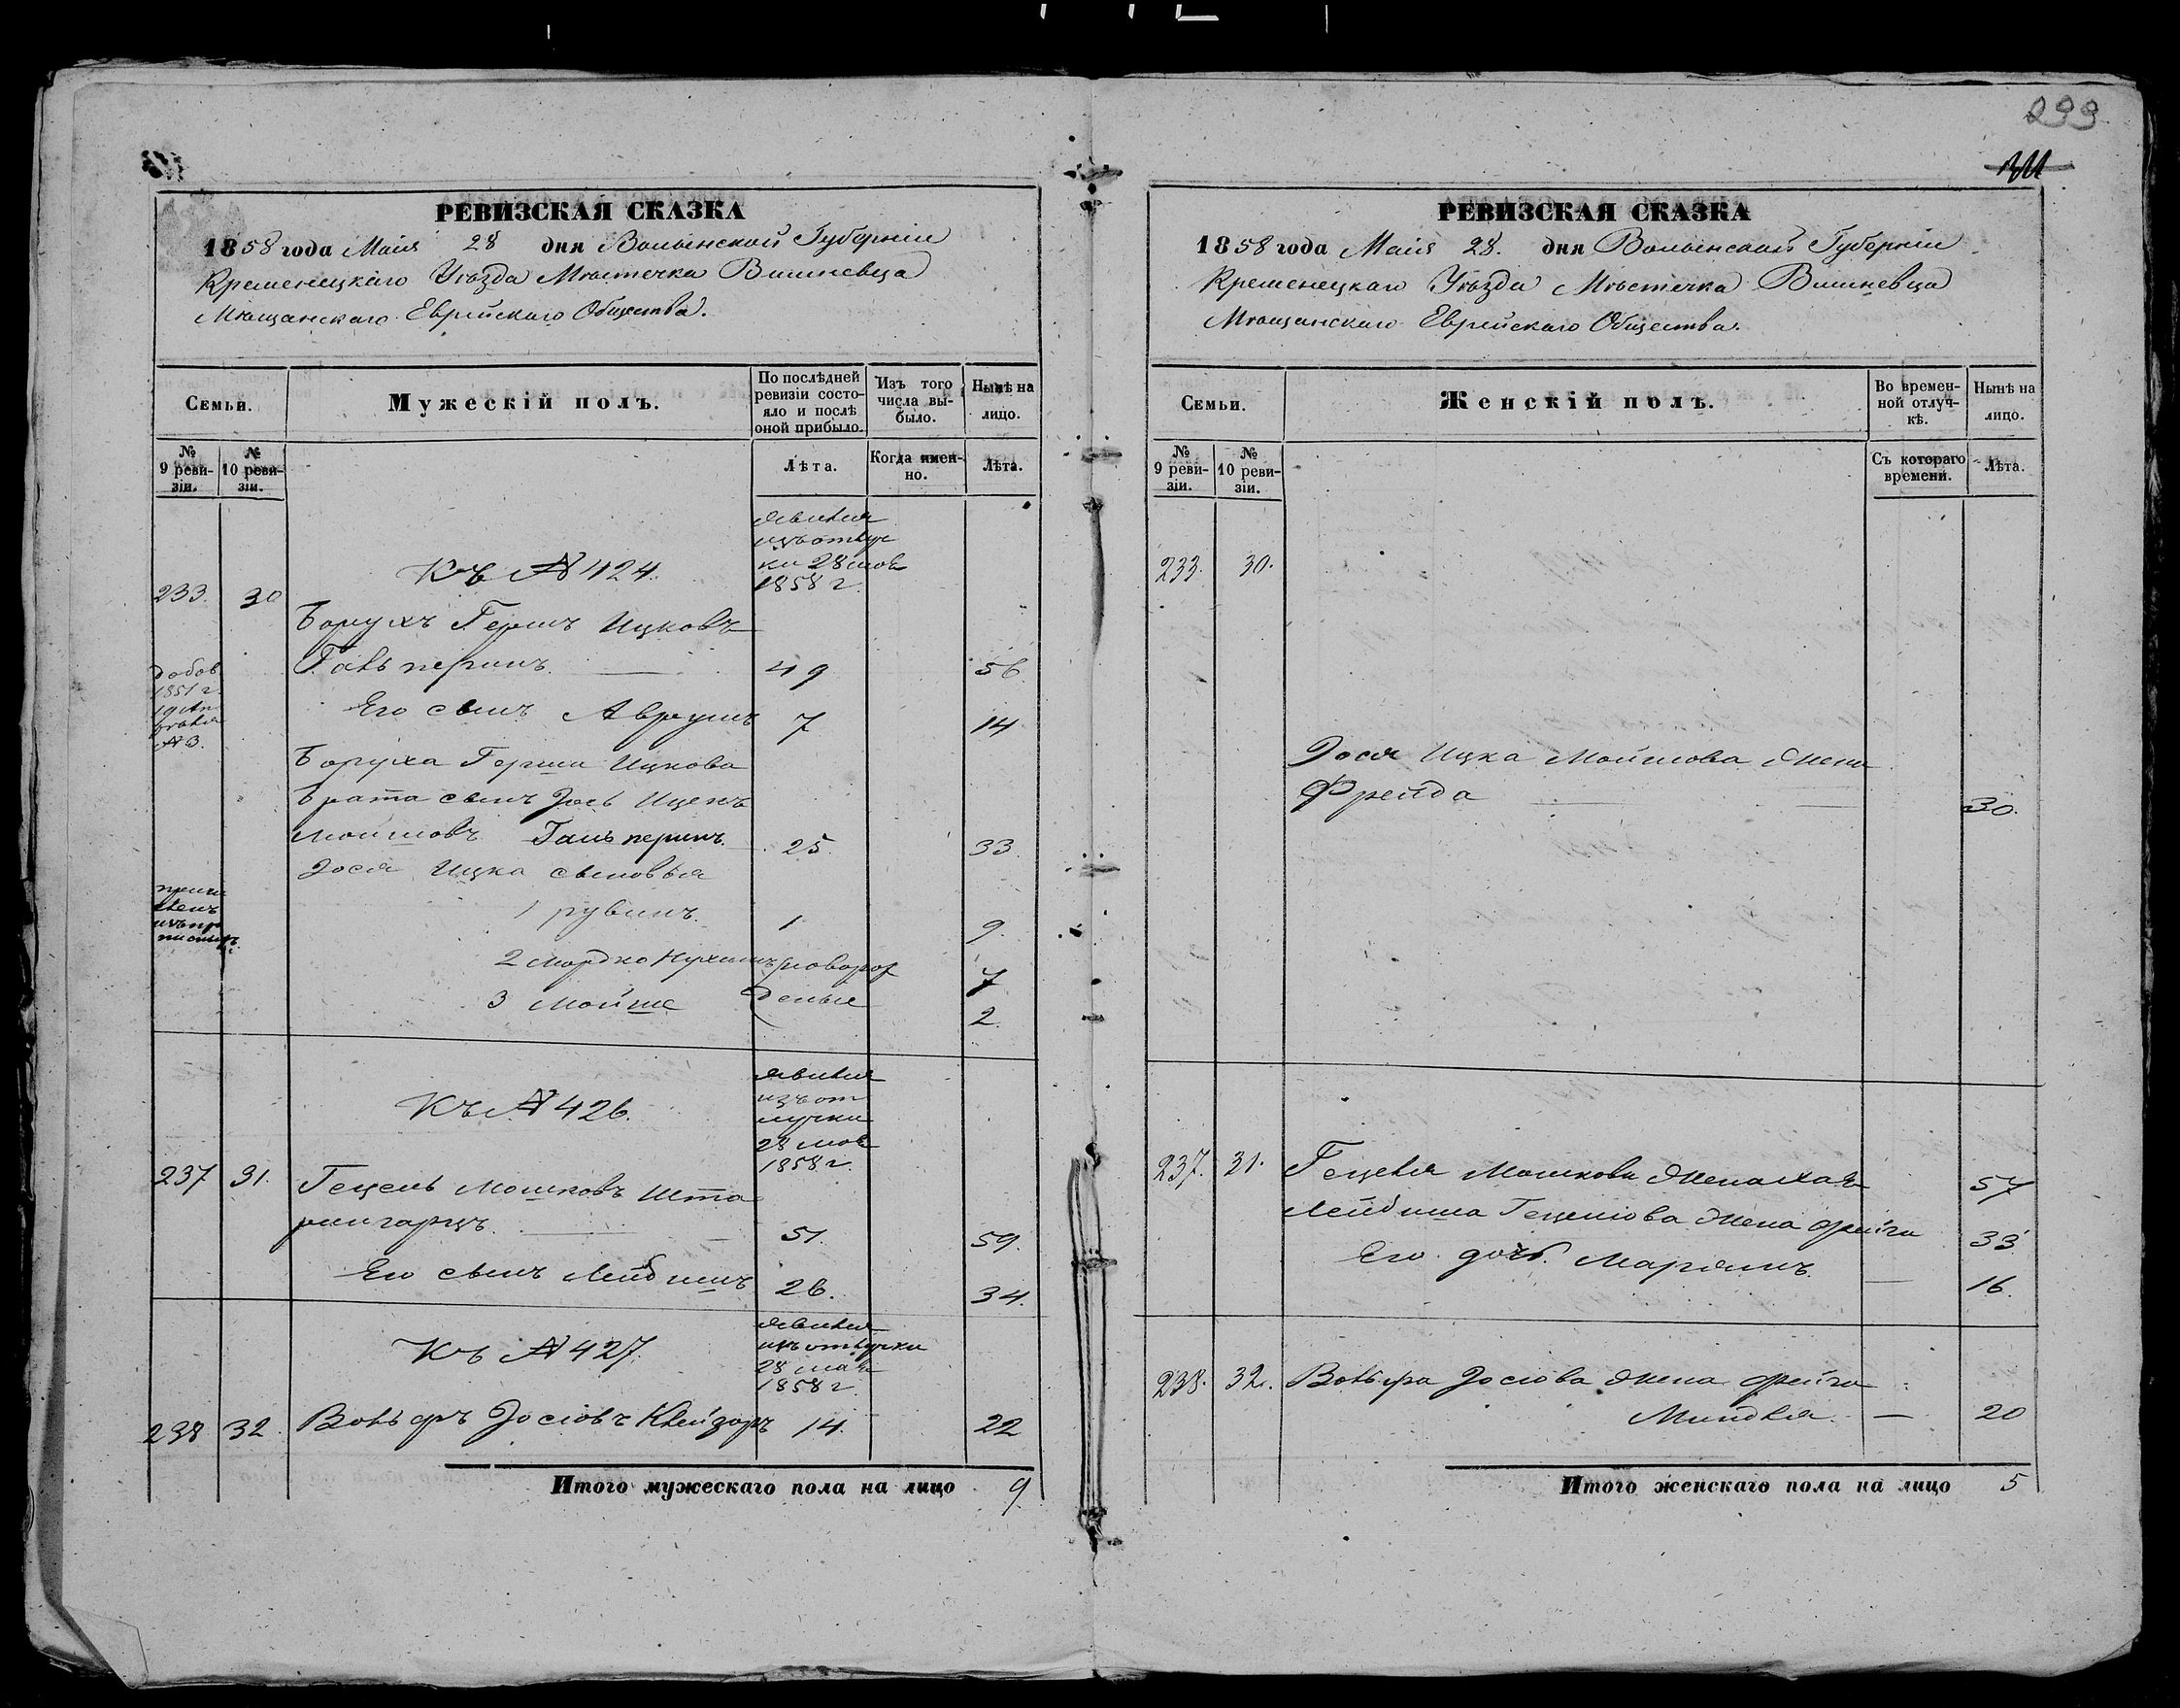 РЕВИЗСКАЯ СКАЗКА
1858 года Маия 28 дня Волынской Губерніи
Кременецкаго Уѣзда Мѣстечка Вишневца
Мѣщанскаго Еврейскаго Общества.
Семьи.
Мужескій полъ.
По послѣдней ревизіи состо-
яло и послѣ
оной прибыло.
Изъ того
числа вы-
было.
Нынѣ на
лицо.
№
9 реви-
зіи.
№
10 реви-
зіи.
Лѣта.
Когда имен-
но.
Лѣта.
явился
изъ отлуч
ки 28 мая
1858 г.
Къ № 424.
233. 30
Борухъ Гершъ Ицковъ
Гальперинъ. 49 56
добов
1851 г.
№ 3.
Его сынъ Аврумъ 7 14
Боруха Герша Ицкова
брата сынъ Іось Ицекъ
Мошковъ Гальперинъ. 25 33
Іося Ицка сыновья
1 рувинъ. 1 9.
2 Мордко Нухимъ новорож 7
3 Мойше деные 2.
явился
изъ от
лучки
28 мая
1858 г.
Къ № 426.
237 31. Гецель Мошковъ Шта
рингарцъ. 51. 59.
Его сынъ Лейбишъ 26. 34.
явился
изъ отлучки
28 мая
1858 г.
Къ № 427.
238 32 Вольфъ Іосіовъ Клейзоръ 14. 22
Итого мужескаго пола на лицо 9.
233
РЕВИЗСКАЯ СКАЗКА
1858 года Маия 28. дня Волынской Губерніи
Кременецкаго Уѣзда Мѣстечка Вишневца
Мѣщанскаго Еврейскаго Общества.
Семьи.
Женскій полъ.
Во времен-
ной отлуч-
кѣ.
Нынѣ на
лицо.
№
9 реви-
зіи.
№
10 реви-
зіи.
Съ котораго
времени.
Лѣта.
233. 30.
Іося Ицка Мойшова жена
Фрейда 30.
237. 31. Гецеля Мошкова жена Хая 57
Лейбиша Гецеліова жена Фейга 33
Его дочь. Маріямъ. 16.
238. 32. Вольфа Іосіова жена Фейга
Миндля. 20
Итого женскаго пола на лицо 5